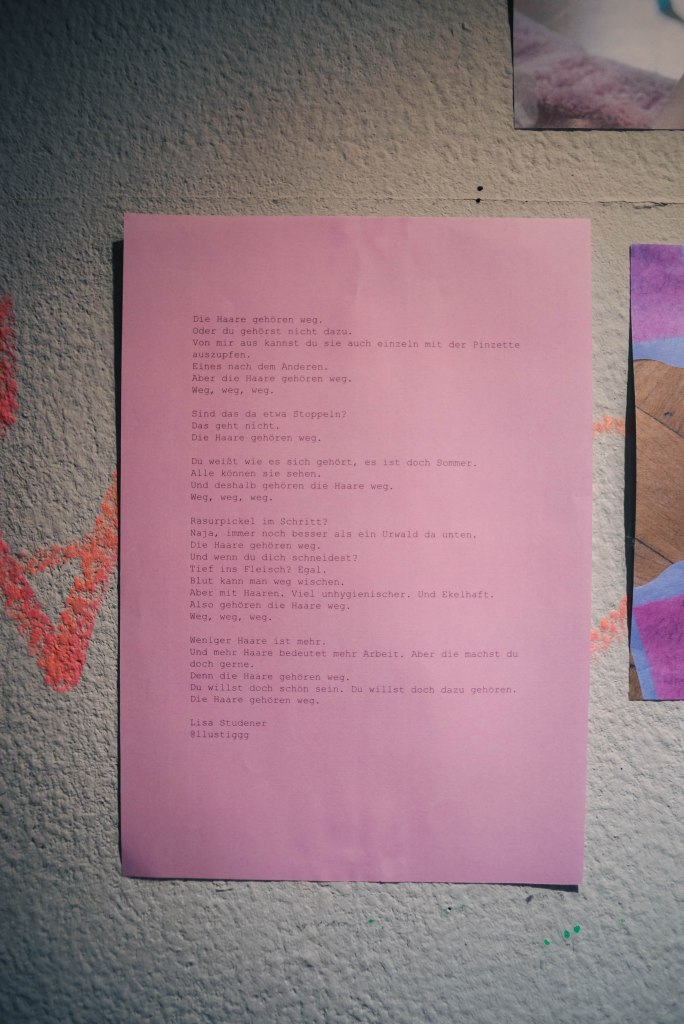 Die Haare gehören weg.
Oder du gehörst nicht dazu.
Von mir aus kannst du sie auch einzeln mit der Pinzette
auszupfen.
Eines nach dem Anderen.
Aber die Haare gehören weg.
Weg, weg, weg.
Sind das da etwa Stoppeln?
Das geht nicht.
Die Haare gehören weg.
Du weißt wie es sich gehört, es ist doch Sommer.
Alle können sie sehen.
Und deshalb gehören die Haare weg.
Weg, weg, weg.
Rasurpickel im Schritt?
Naja, immer noch besser als ein Urwald da unten.
Die Haare gehören weg.
Und wenn du dich schneidest?
Tief ins Fleisch? Egal.
Blut kann man weg wischen.
Aber mit Haaren. Viel unhygienischer. Und Ekelhaft.
Also gehören die Haare weg.
Weg, weg, weg.
Weniger Haare ist mehr.
Und mehr Haare bedeutet mehr Arbeit. Aber die machst du
doch gerne.
Denn die Haare gehören weg.
Du willst doch schön sein. Du willst doch dazu gehören.
Die Haare gehören weg.
Lisa Studener
@llustiggg